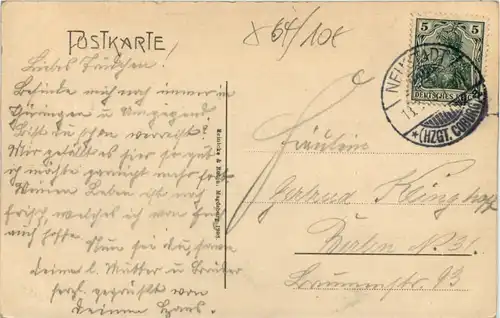 POSTKARTE
Liebes Trudchen!
Befinde mich noch immer in
Thüringen u Umgegend.
Bist du schon verreist?
Mir gefällt es hier so gut
ich möchte gar nicht mehr fort.
Meinen Leben ist noch
frisch, welches ich von
auch hoffe. Nun sei du, sowie
deine l. Mutter u Bruder
herzl. gegrüßt von
Deinem Hans.
Reinicke & Rubin, Magdeburg, 1906.
5 5
DEUTSCHES REICH
NEUSTADT
* (HZGT. COBURG)
Fräulein
Gertrud
Berlin N. 31.
Brunnenstr. 93